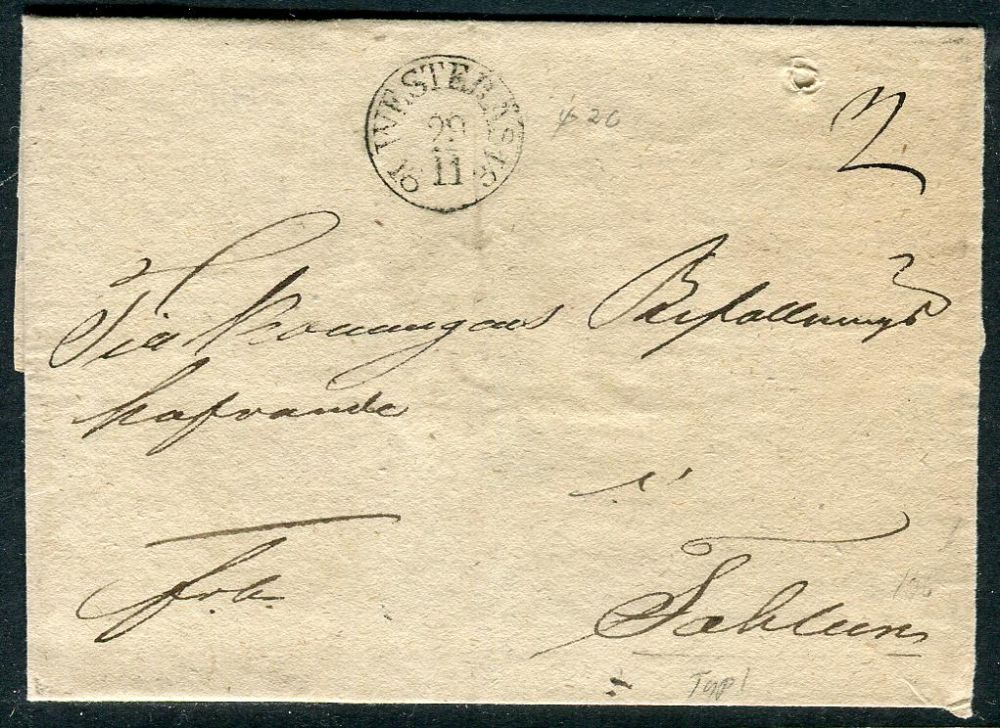 WESTERÅS
29
11
ψ 20
2
Till Konungens Befallnings
hafvande
i
frb.
Fahlun
Typ 1